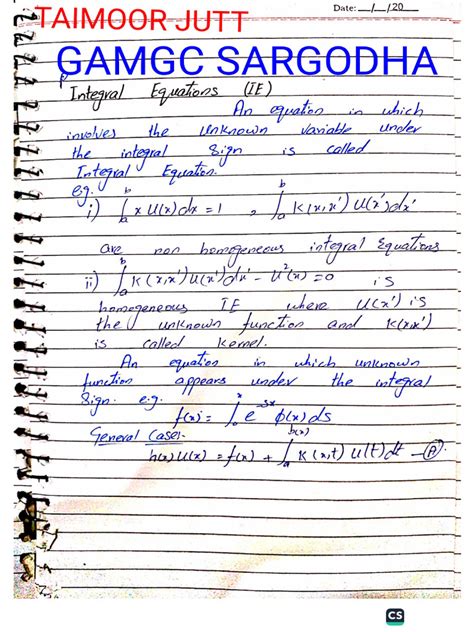 TAIMOOR JUTT
Date: __/__/20__
GAMGC SARGODHA
Integral Equations (IE)
An equation in which
involves the unknown variable under
the integral Sign is called
Integral Equation.
e.g.
i) ∫_a^b x u(x)dx = 1 , ∫_a^b K(x,x') u(x')dx'
are non homogeneous integral Equations
ii) ∫_a^b K(x,x')u(x')dx' - u²(x) = 0 is
homogeneous IE where u(x') is
the unknown function and K(x,x')
is called Kernel.
An equation in which unknown
function appears under the integral
Sign. e.g.
f(x) = ∫_0^x e^{-sx} ϕ(x)ds
General Case:-
h(x)u(x) = f(x) + ∫_a^{b(x)} K(x,t) u(t)dt —(A)
CS